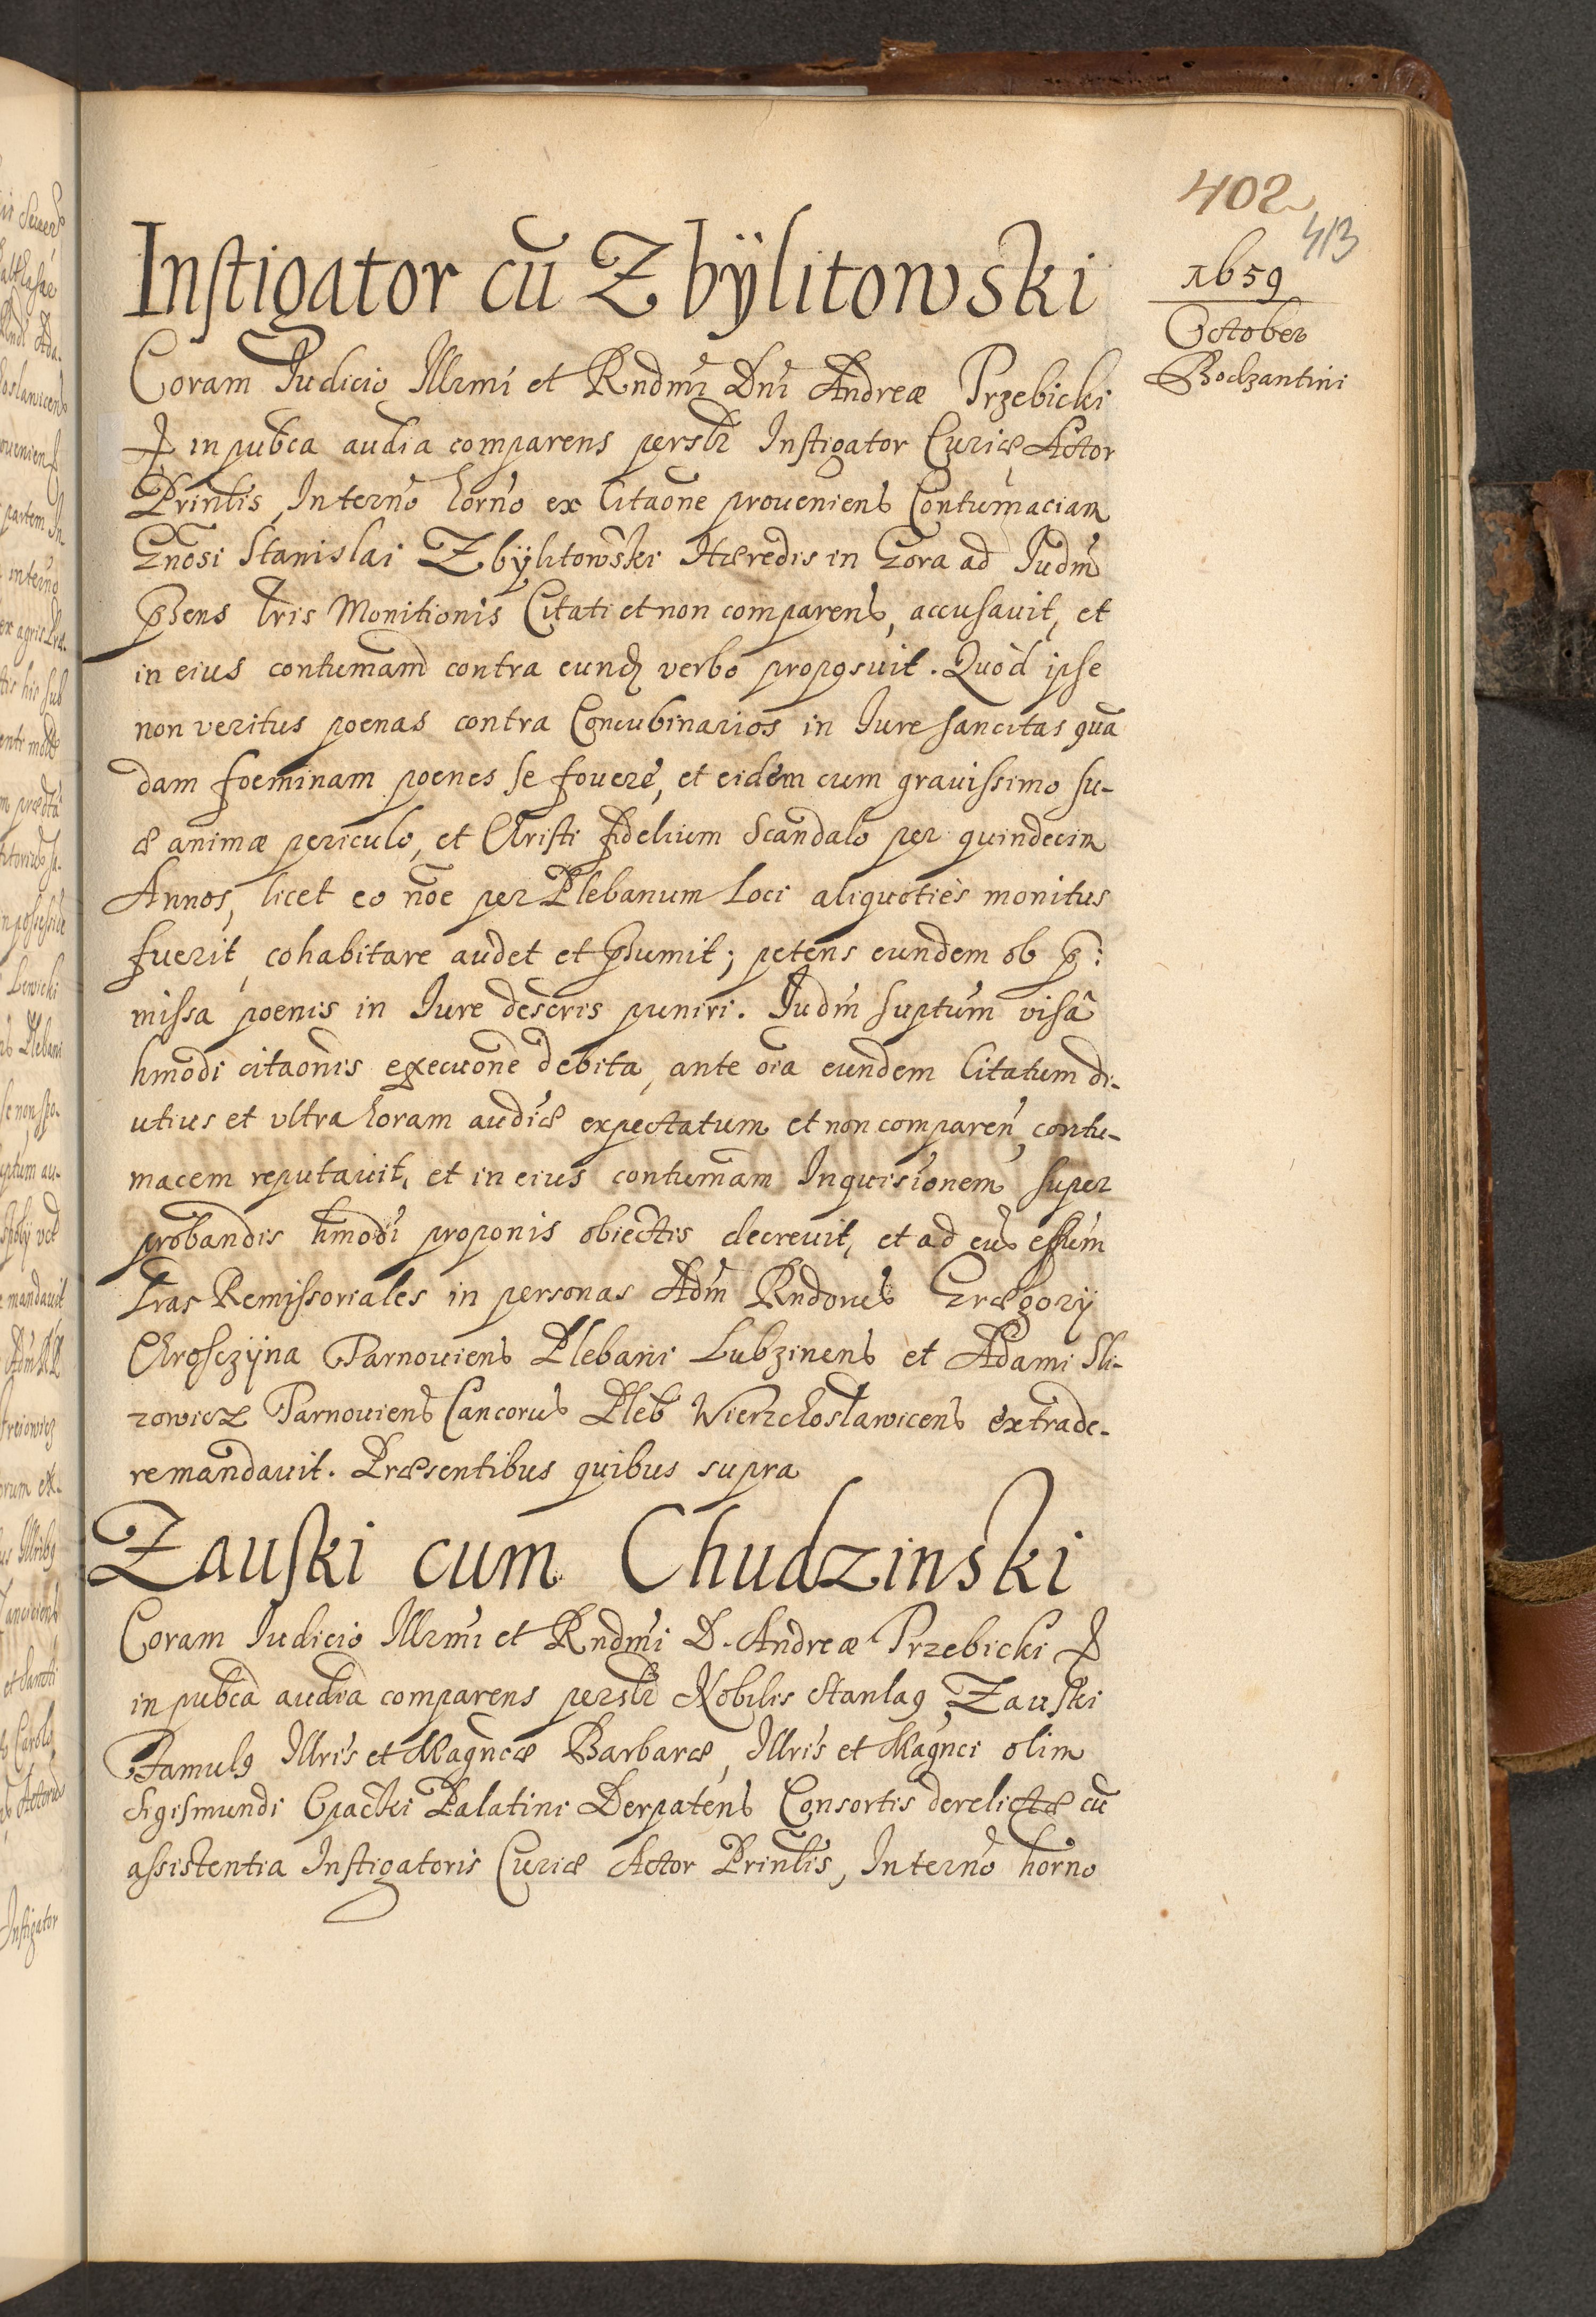 402
413
1659
October
Bodzantini
Instigator cū Zbÿlitowski
Coram Judicio Illrmi et Rndmi Dni Andreæ Trzebicki
in pubca audia comparens persłr Instigator Curiæ Actor
Prinlis, Interno horno ex Citaone proueniens Contumaciam
Gnosi Stanislai Zbÿlitowski Hæredis in Gora ad Judm
pħens lris Monitionis Citati et non comparens, accusauit, et
in eius contumam contra eundẽ verbo proposuit. Quòd ipse
non veritus poenas contra Concubinarios in Jure sancitas quā
dam foeminam poenes se fouere, et eidem cum grauissimo su-
æ animæ periculo, et Christi fidelium Scandalo per quindecim
Annos, licet eo noe per Plebanum Loci aliquoties monitus
fuerit, cohabitare audet et pħsumit; petens eundem ob p̄:
missa poenis in Jure descris puniri. Judm suptum visâ
hmodi citaonis execuone debita, ante oia eundem Citatum di-
utius et vltra horam audiæ expectatum et non comparen, contu-
macem reputauit, et in eius contumam Inquisionem super
probandis hmodi proponis obiectis decreuit, et ad eius effum
Lras Remissoriales in personas Adm Rndorus Græegorij
Chrosczÿna Tarnouiens Plebani Lubzinens et Adami Sli-
zowicz Tarnouiens Cancorus Pleb Wierzchosławicens extrade-
re mandauit. Præsentibus quibus supra
Zauski cum Chudzinski
Coram Judicio Illrmi et Rndmi D. Andreæ Trzebicki
in pubca audia comparens persłr Nobilis Stanlaꝰ Zauski
Famulꝰ Illris et Magncæ Barbaræ, Illris et Magnci olim
Sigismundi Opacki Palatini Derpatens Consortis derelictæ cū
assistentia Instigatoris Curiæ Actor Prinlis, Interno horno